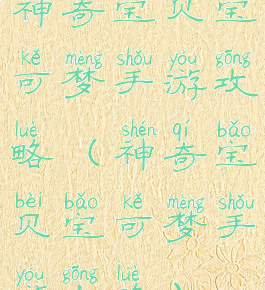 神奇宝贝宝
kě mèng shǒu yóu gōng
可梦手游攻
lüè shén qí bǎo
略（神奇宝
bèi bǎo kě mèng shǒu
贝宝可梦手
yóu gōng lüè